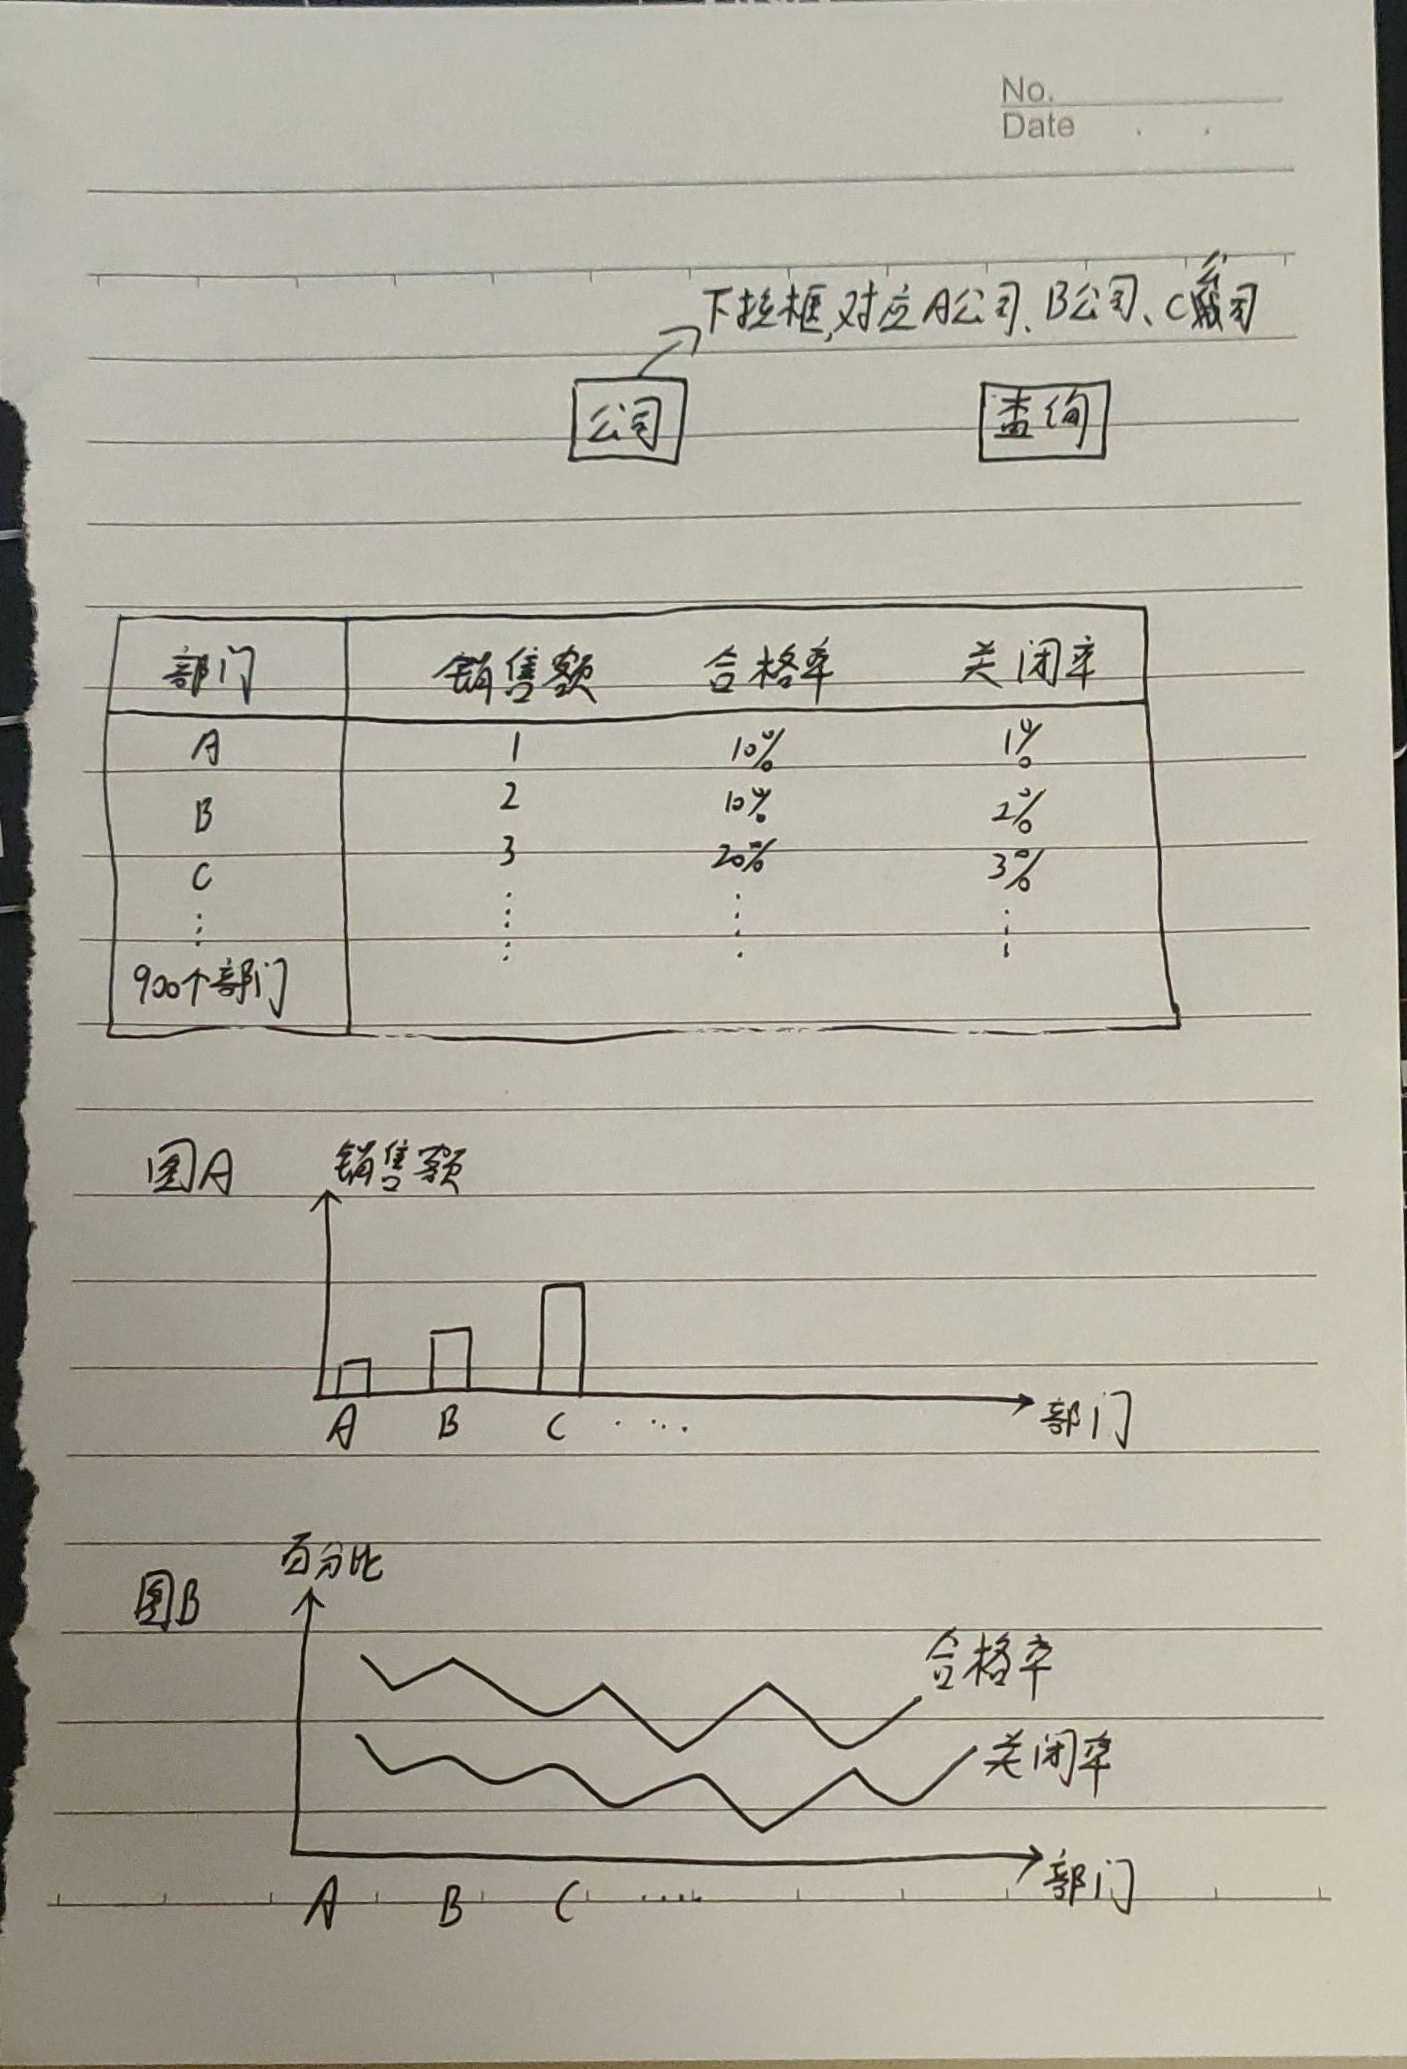 No.
Date
下拉框,对应A公司、B公司、C公司
公司 查询
部门 销售额 合格率 关闭率
A 1 10% 1%
B 2 10% 2%
C 3 20% 3%
900个部门
图A 销售额
A B C ..... 部门
图B 百分比
合格率
关闭率
A B C ..... 部门